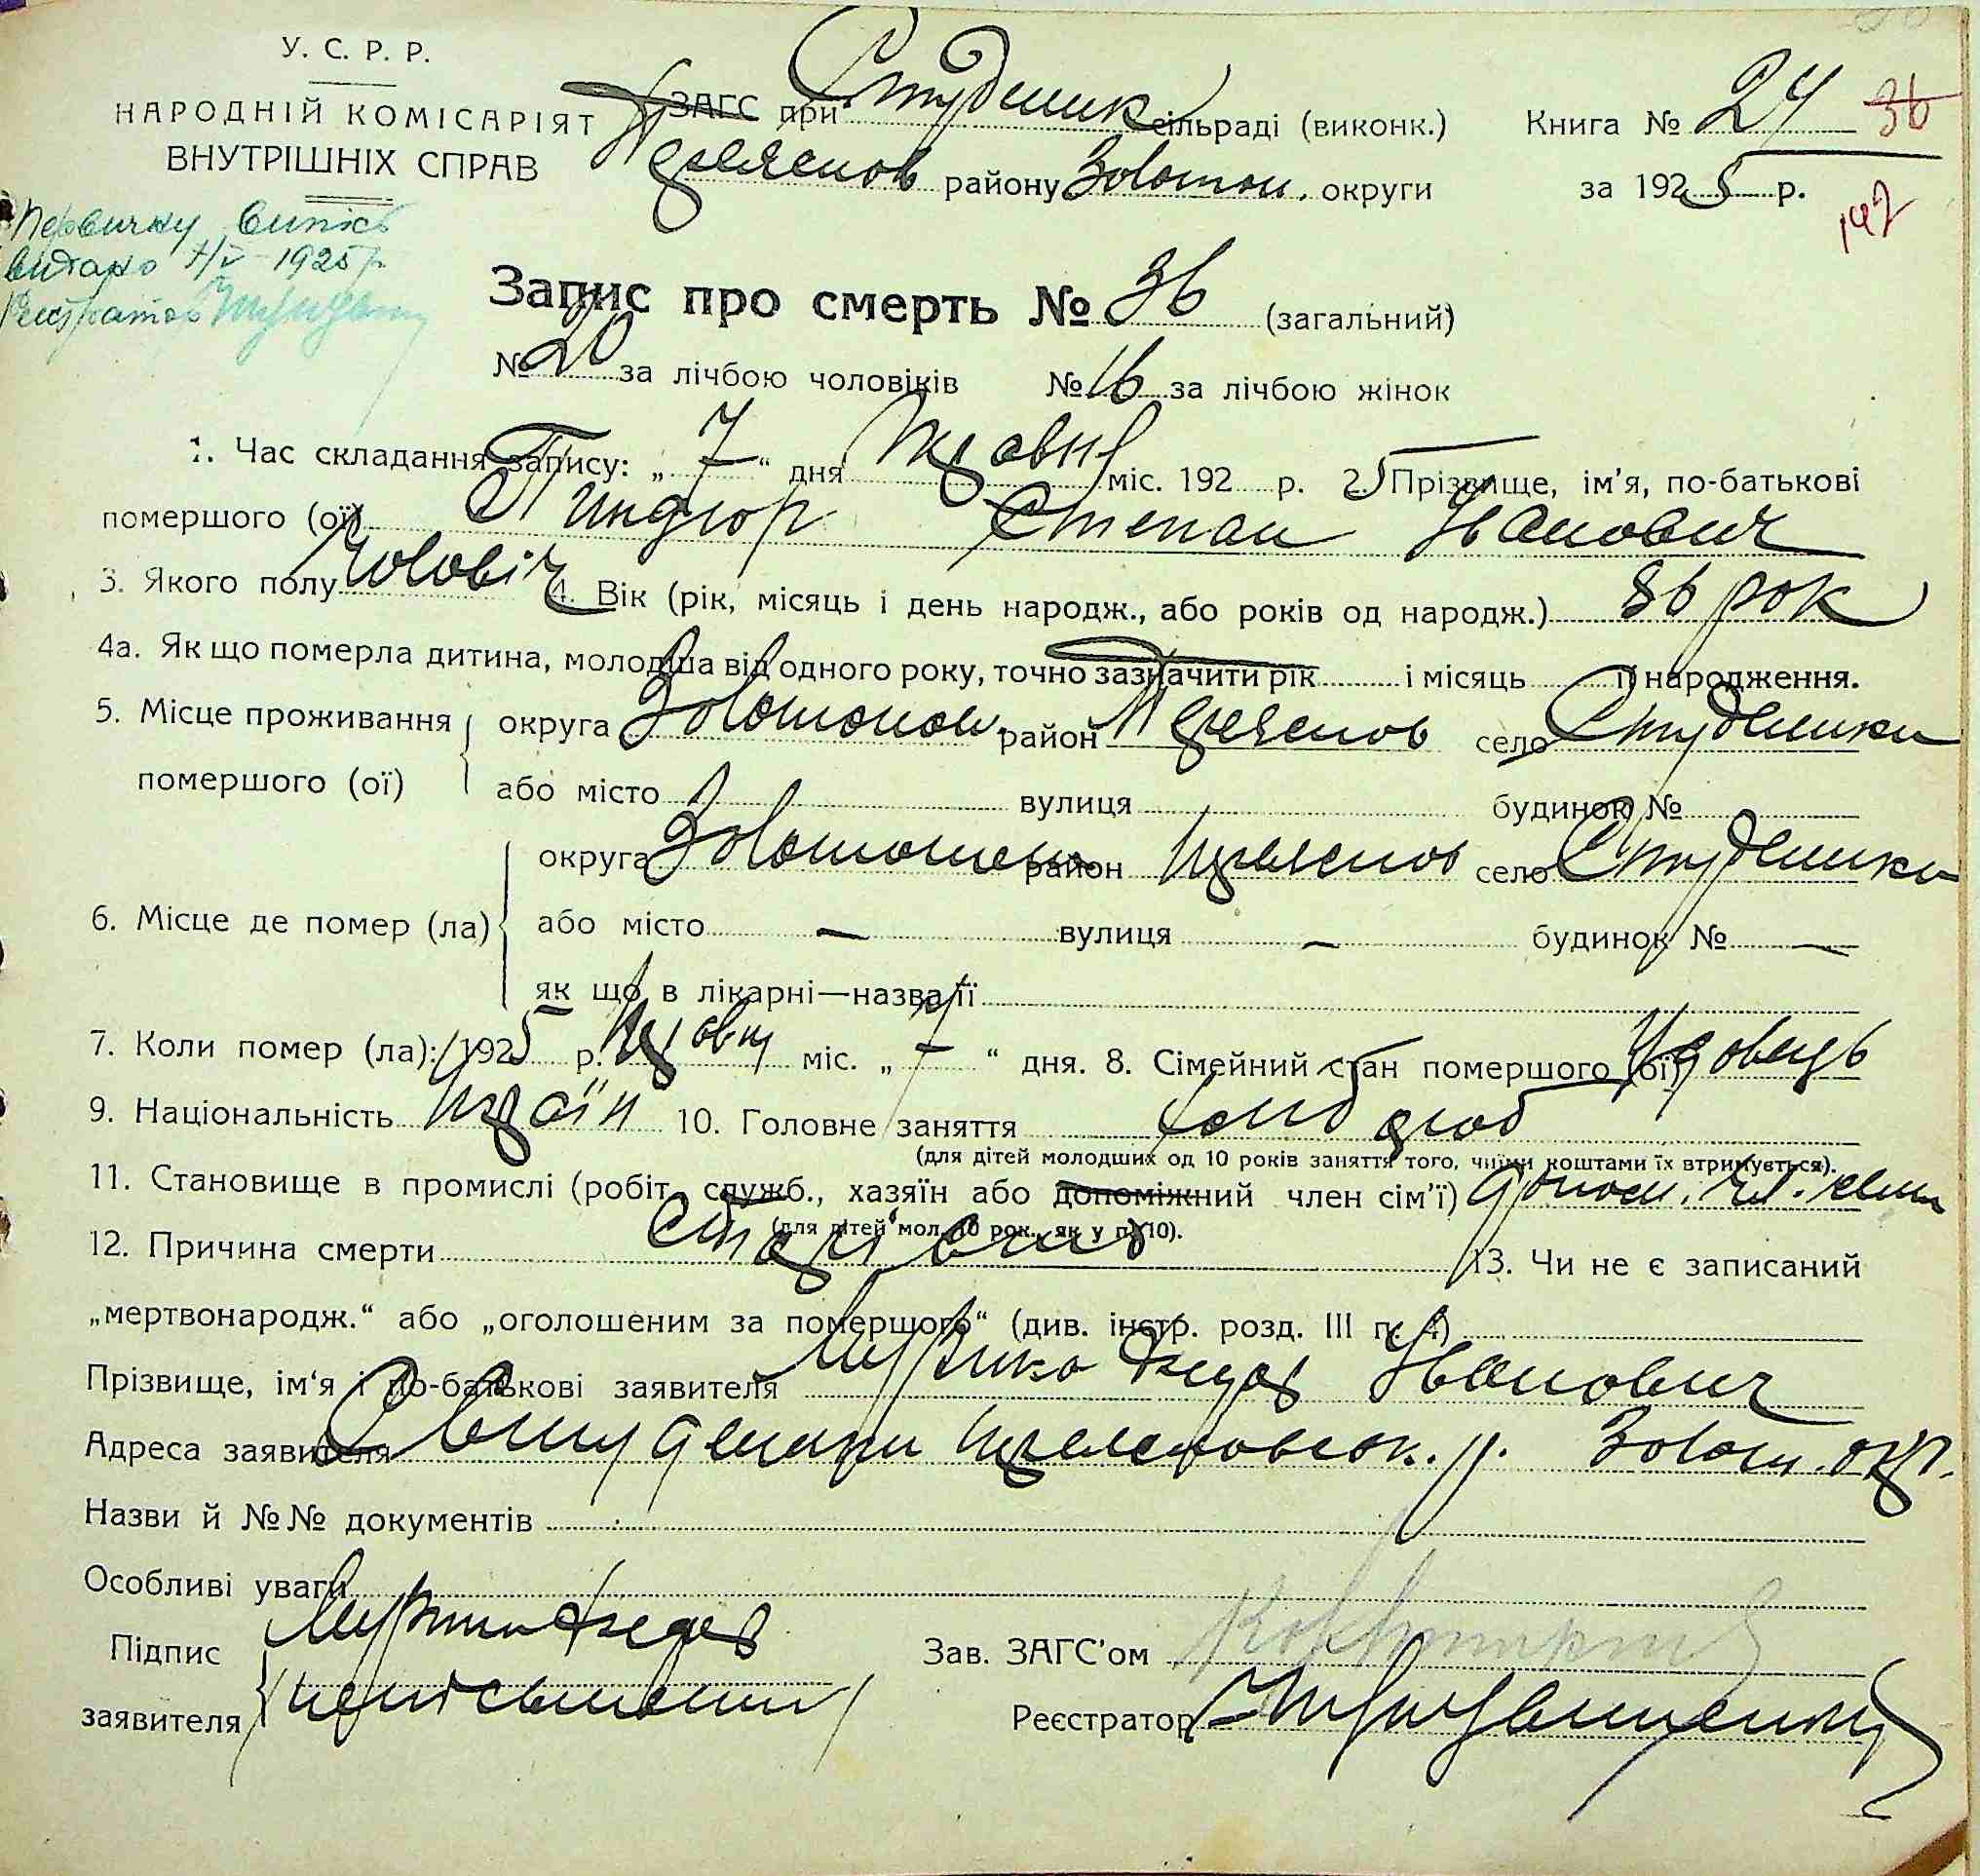 У. С. Р. Р.
НАРОДНІЙ КОМІСАРІЯТ
ВНУТРІШНІХ СПРАВ
ЗАГС при Студеник сільраді (виконк.)
району Золотон. округи
Книга № 24 36
за 1925 р.
142
Первичну випись
видано 7/V 1925 р.
Реєстратор
Запис про смерть № 36 (загальний)
№ 20 за лічбою чоловіків № 16 за лічбою жінок
1. Час складання запису: „ 7 “ дня Травня міс. 1925 р. 2. Прізвище, ім’я, по-батькові
помершого (ої) Пиндюр Степан Іванович
3. Якого полу чоловіч 4. Вік (рік, місяць і день народж., або років од народж.) 86 рок
4а. Як що померла дитина, молодша від одного року, точно зазначити рік і місяць її народження.
5. Місце проживання округа Золотонон. район село Студеники
помершого (ої) або місто вулиця будинок №
округа район село Студеники
6. Місце де помер (ла) або місто — вулиця — будинок № —
як що в лікарні—назва її
7. Коли помер (ла): 1925 р. Травня міс. „ 7 “ дня. 8. Сімейний стан помершого (ої) Удовець
9. Національність Україн 10. Головне заняття хліб
(для дітей молодших од 10 років заняття того, чиїми коштами їх втримується).
11. Становище в промислі (робіт., служб., хазяїн або допоміжний член сім’ї)
(для дітей мол. 10 рок., як у п. 10).
12. Причина смерти 13. Чи не є записаний
„мертвонародж.“ або „оголошеним за помершого“ (див. інстр. розд. III п. 4)
Прізвище, ім‘я і по-батькові заявителя Федор Іванович
Адреса заявителя С Золот. окр.
Назви й №№ документів
Особливі уваги
Підпис
заявителя
Зав. ЗАГС’ом
Реєстратор